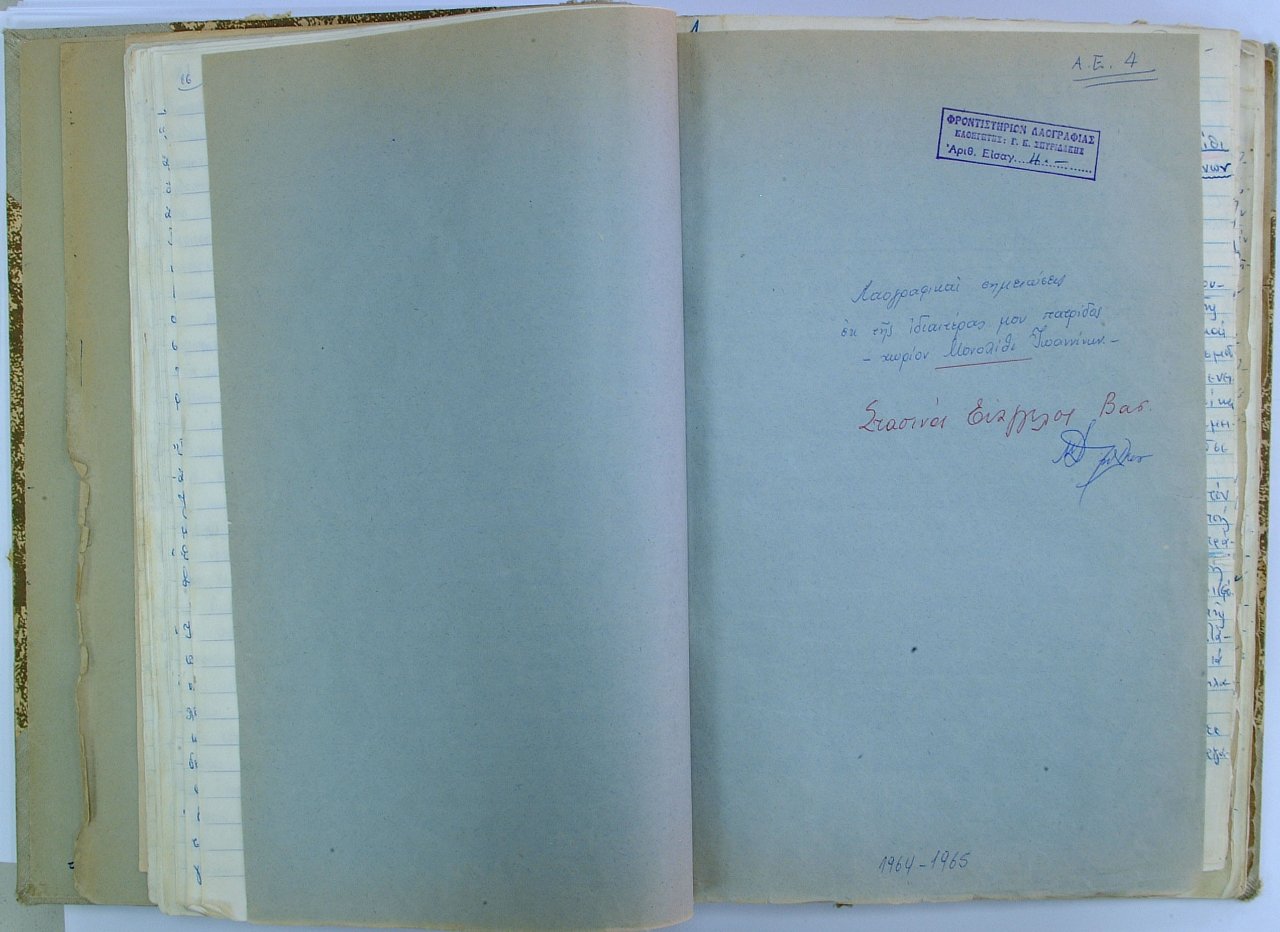 16
Α.Ε. 4
ΦΡΟΝΤΙΣΤΗΡΙΟΝ ΛΑΟΓΡΑΦΙΑΣ
ΚΑΘΗΓΗΤΗΣ: Γ. Κ. ΣΠΥΡΙΔΑΚΗΣ
Ἀριθ. Εἰσαγ....4.-......
Λαογραφικαί σημειώσεις
ἐκ τῆς ἰδιαιτέρας μου πατρίδος
- χωρίον Μονολίθι Ἰωαννίνων -
Στασινός Εὐάγγελος Βασ.
1964-1965